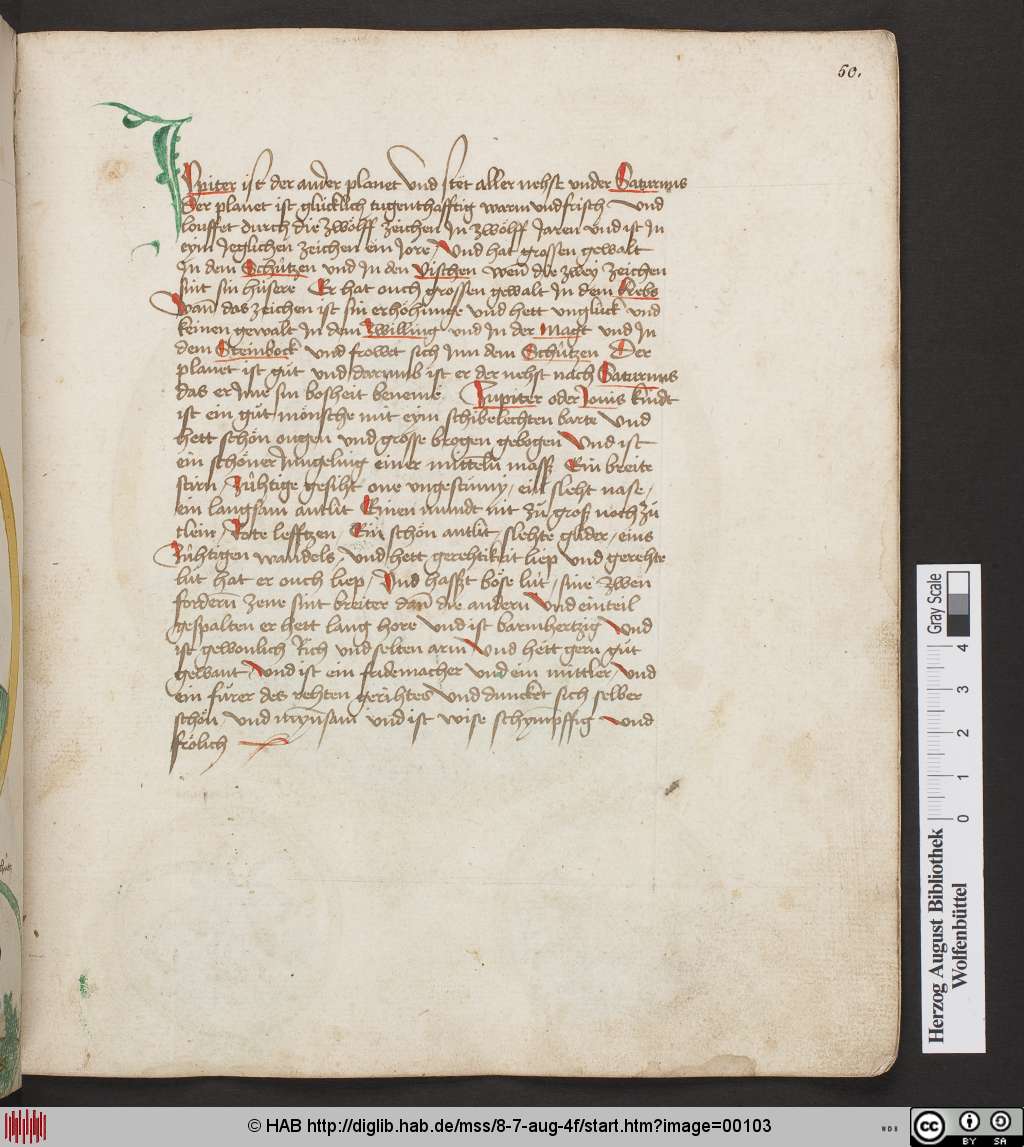 50.
Jupiter ist der ander planet vnd stet aller nehst vnder Saturnus
Der planet ist glücklich tugenthafftig warm vnd frisch vnd
louffet durch die zwölff zeichen Jn zwölff Jaren vnd ist Jn
eym Jeglichen zeichen ein Jore / Vnd hat grossen gewalt
Jn dem Schützen vnd Jn den Vischen wen̄ die zwey zeichen
sint sin hüsere Er hat ouch grossen gewalt Jn dem Krebs
Wan̄ das zeichen ist sin erhöhunge vnd hett vnglück vnd
keinen gewalt Jn dem Zwilling vnd Jn der Magt vnd Jn
dem Steinbock vnd frowet sich Jnn dem Schützen Der
planet ist gut vnd darumb ist er der nehst nach Saturnus
das er Jme sin bosheit beneme Jupiter oder Jouis kindt
ist ein güt mönsche mit eym schibelechten barte vnd
hett schön ougen vnd grosse brogen gebogen Vnd ist
ein schöner Jüngeling einer mitteln̄ mass Ein breite
stirn / Zühtige gesiht one vngestümy / ein sleht nase /
ein langsam antlit Einen mundt nit zü groß noch zü
clein / Rote lefftzen / Ein schön antlit / slehte glider / eins
Zühtigen wandels / vnd hett gerehtikeit liep vnd gerehte
lüt hat er ouch liep / Vnd hasszt böse lüt / sine zwen
fordern̄ zene sint breiter dan̄ die andern Vnd ein teil
gespalten er hett lang hore vnd ist barmhertzig vnd
ist gewonlich Rich vnd selten arm Vnd hett gern güt
gewant / Vnd ist ein fridemacher vnd ein mittler / vnd
ein fürer des rehten gerihtes vnd duncket sich selber
schön vnd mynsam vnd ist wise schympffig vnd
frölich
Gray Scale
0 1 2 3 4
Herzog August Bibliothek
Wolfenbüttel
© HAB http://diglib.hab.de/mss/8-7-aug-4f/start.htm?image=00103
WDB
cc BY SA